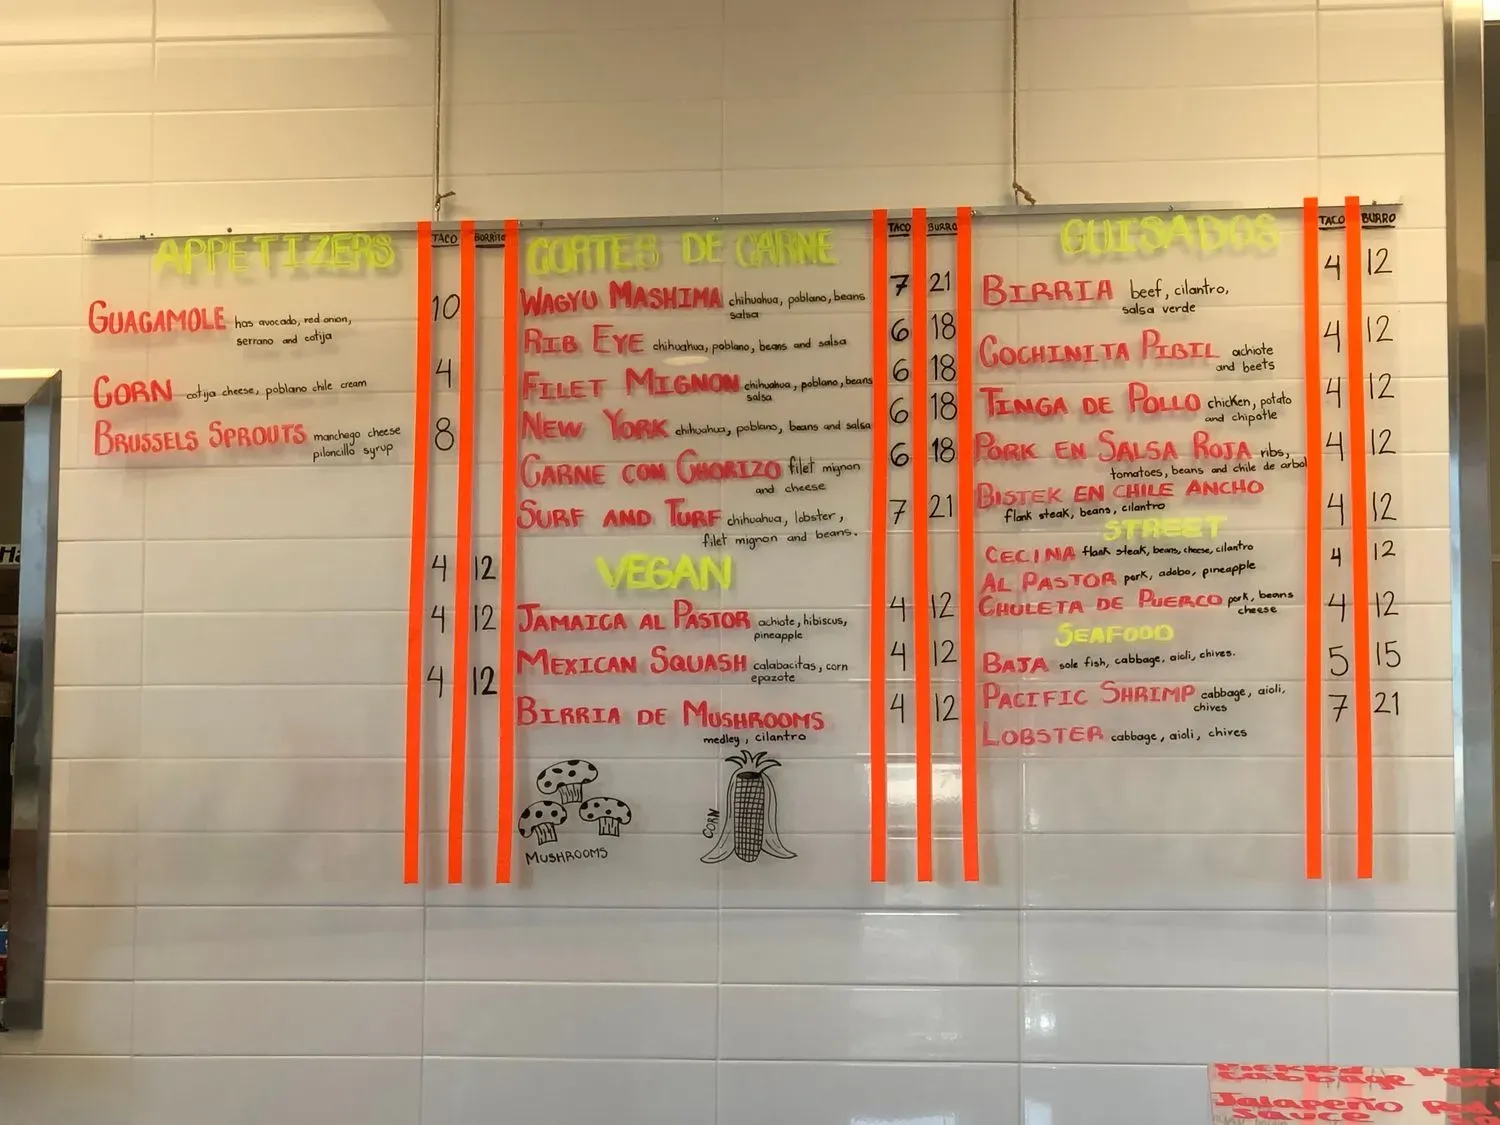 APPETIZERS
TACO BURRITO
GUAGAMOLE has avocado, red onion, 10
serrano and cotija
CORN cotija cheese, poblano chile cream 4
BRUSSELS SPROUTS manchego cheese 8
piloncillo syrup
4 12
4 12
4 12
CORTES DE CARNE
TACO BURRO
WAGYU MASHIMA chihuahua, poblano, beans 7 21
salsa
RIB EYE chihuahua, poblano, beans and salsa 6 18
FILET MIGNON chihuahua, poblano, beans 6 18
salsa
NEW YORK chihuahua, poblano, beans and salsa 6 18
CARNE CON CHORIZO filet mignon 6 18
and cheese
SURF AND TURF chihuahua, lobster, 7 21
filet mignon and beans.
VEGAN
JAMAICA AL PASTOR achiote, hibiscus, 4 12
pineapple
MEXICAN SQUASH calabacitas, corn 4 12
epazote
BIRRIA DE MUSHROOMS 4 12
medley, cilantro
MUSHROOMS
CORN
GUISADOS
TACO BURRO
BIRRIA beef, cilantro, 4 12
salsa verde
COCHINITA PIBIL achiote 4 12
and beets
TINGA DE POLLO chicken, potato 4 12
and chipotle
PORK EN SALSA ROJA ribs, 4 12
tomatoes, beans and chile de arbol
BISTEK EN CHILE ANCHO 4 12
flank steak, beans, cilantro
STREET
CECINA flank steak, beans, cheese, cilantro 4 12
AL PASTOR pork, adobo, pineapple
CHULETA DE PUERCO pork, beans 4 12
cheese
SEAFOOD
BAJA sole fish, cabbage, aioli, chives. 5 15
PACIFIC SHRIMP cabbage, aioli, 7 21
chives
LOBSTER cabbage, aioli, chives
Pickled
Cabbage
Jalapeño
Sauce